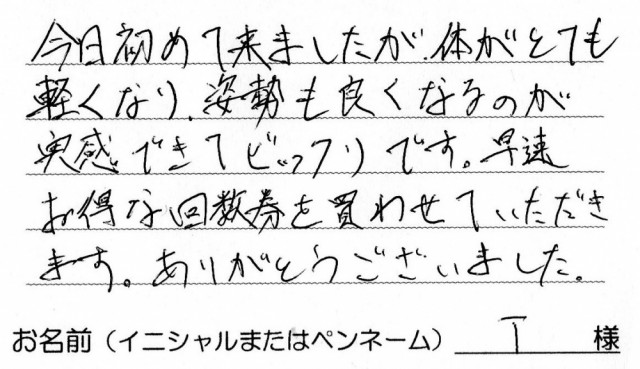 今日初めて来ましたが、体がとても
軽くなり、姿勢も良くなるのが
実感できてビックリです。早速
お得な回数券を買わせていただき
ます。ありがとうございました。
お名前（イニシャルまたはペンネーム） T 様